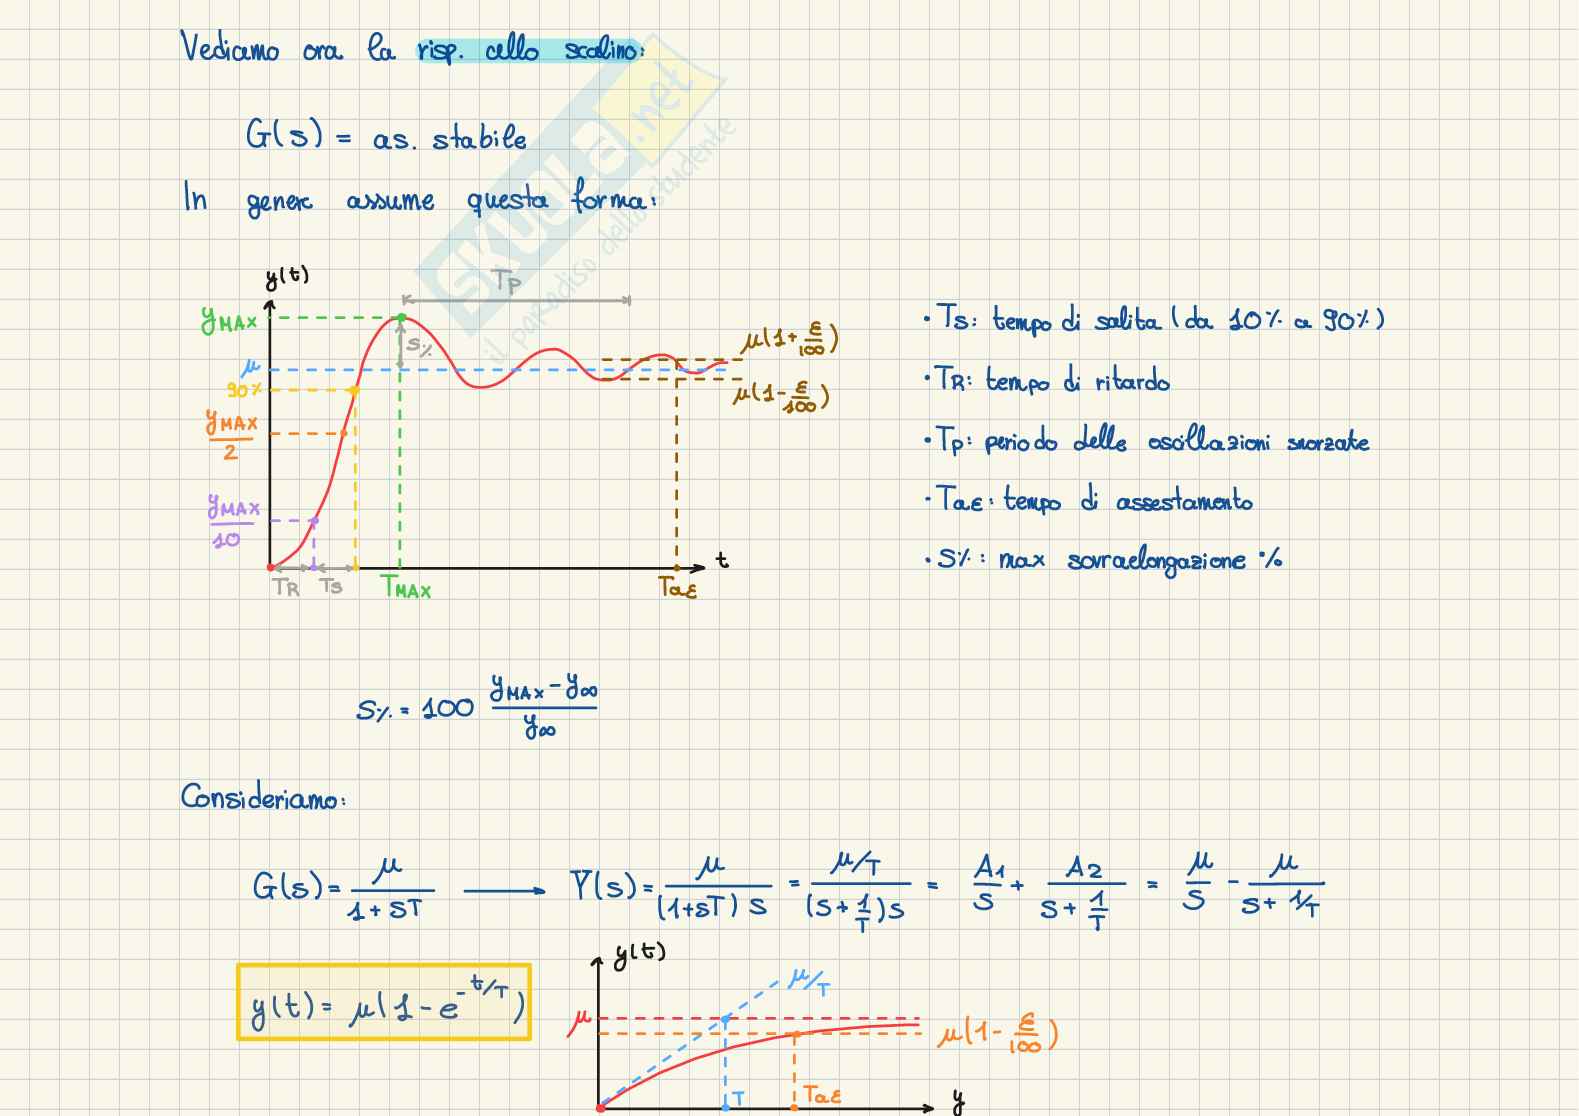 Vediamo ora la risp. allo scalino:
G(s) = as. stabile
In genere assume questa forma:
y(t)
Tp
yMAX
S%
μ
90%
yMAX/2
yMAX/10
μ(1+ε/100)
μ(1-ε/100)
t
TR
Ts
TMAX
Taε
• Ts: tempo di salita (da 10% a 90%)
• TR: tempo di ritardo
• Tp: periodo delle oscillazioni smorzate
• Taε: tempo di assestamento
• S%: max sovraelongazione %
S% = 100 (yMAX - y∞)/y∞
Consideriamo:
G(s) = μ/(1+sT) ⟶ Y(s) = μ/((1+sT)s) = (μ/T)/((s+1/T)s) = A1/s + A2/(s+1/T) = μ/s - μ/(s+1/T)
y(t) = μ(1-e^(-t/T))
y(t)
μ/T
μ
μ(1-ε/100)
T
Taε
y
SKUOLA.net
il paradiso dello studente